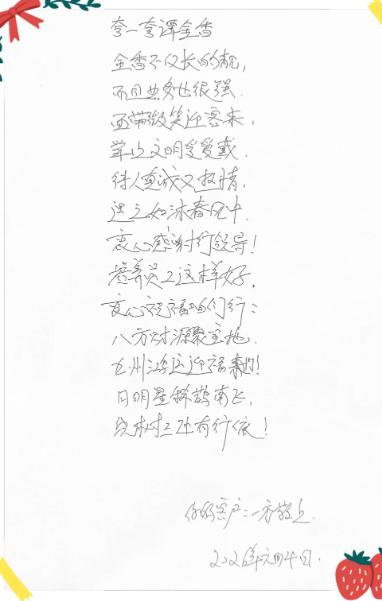 夸一夸谭金香
金香不仅长的靓,
而且业务也很强.
面带微笑迎客来,
举止文明受爱戴.
待人真诚又热情,
遇之如沐春风中.
衷心感谢行领导!
培养员工这样好.
衷心祝福咱们行:
八方财源聚宝地.
九州鸿运迎福来!!
月明星稀鹊南飞,
绕树三还有行依!
你的客户:一方敬上.